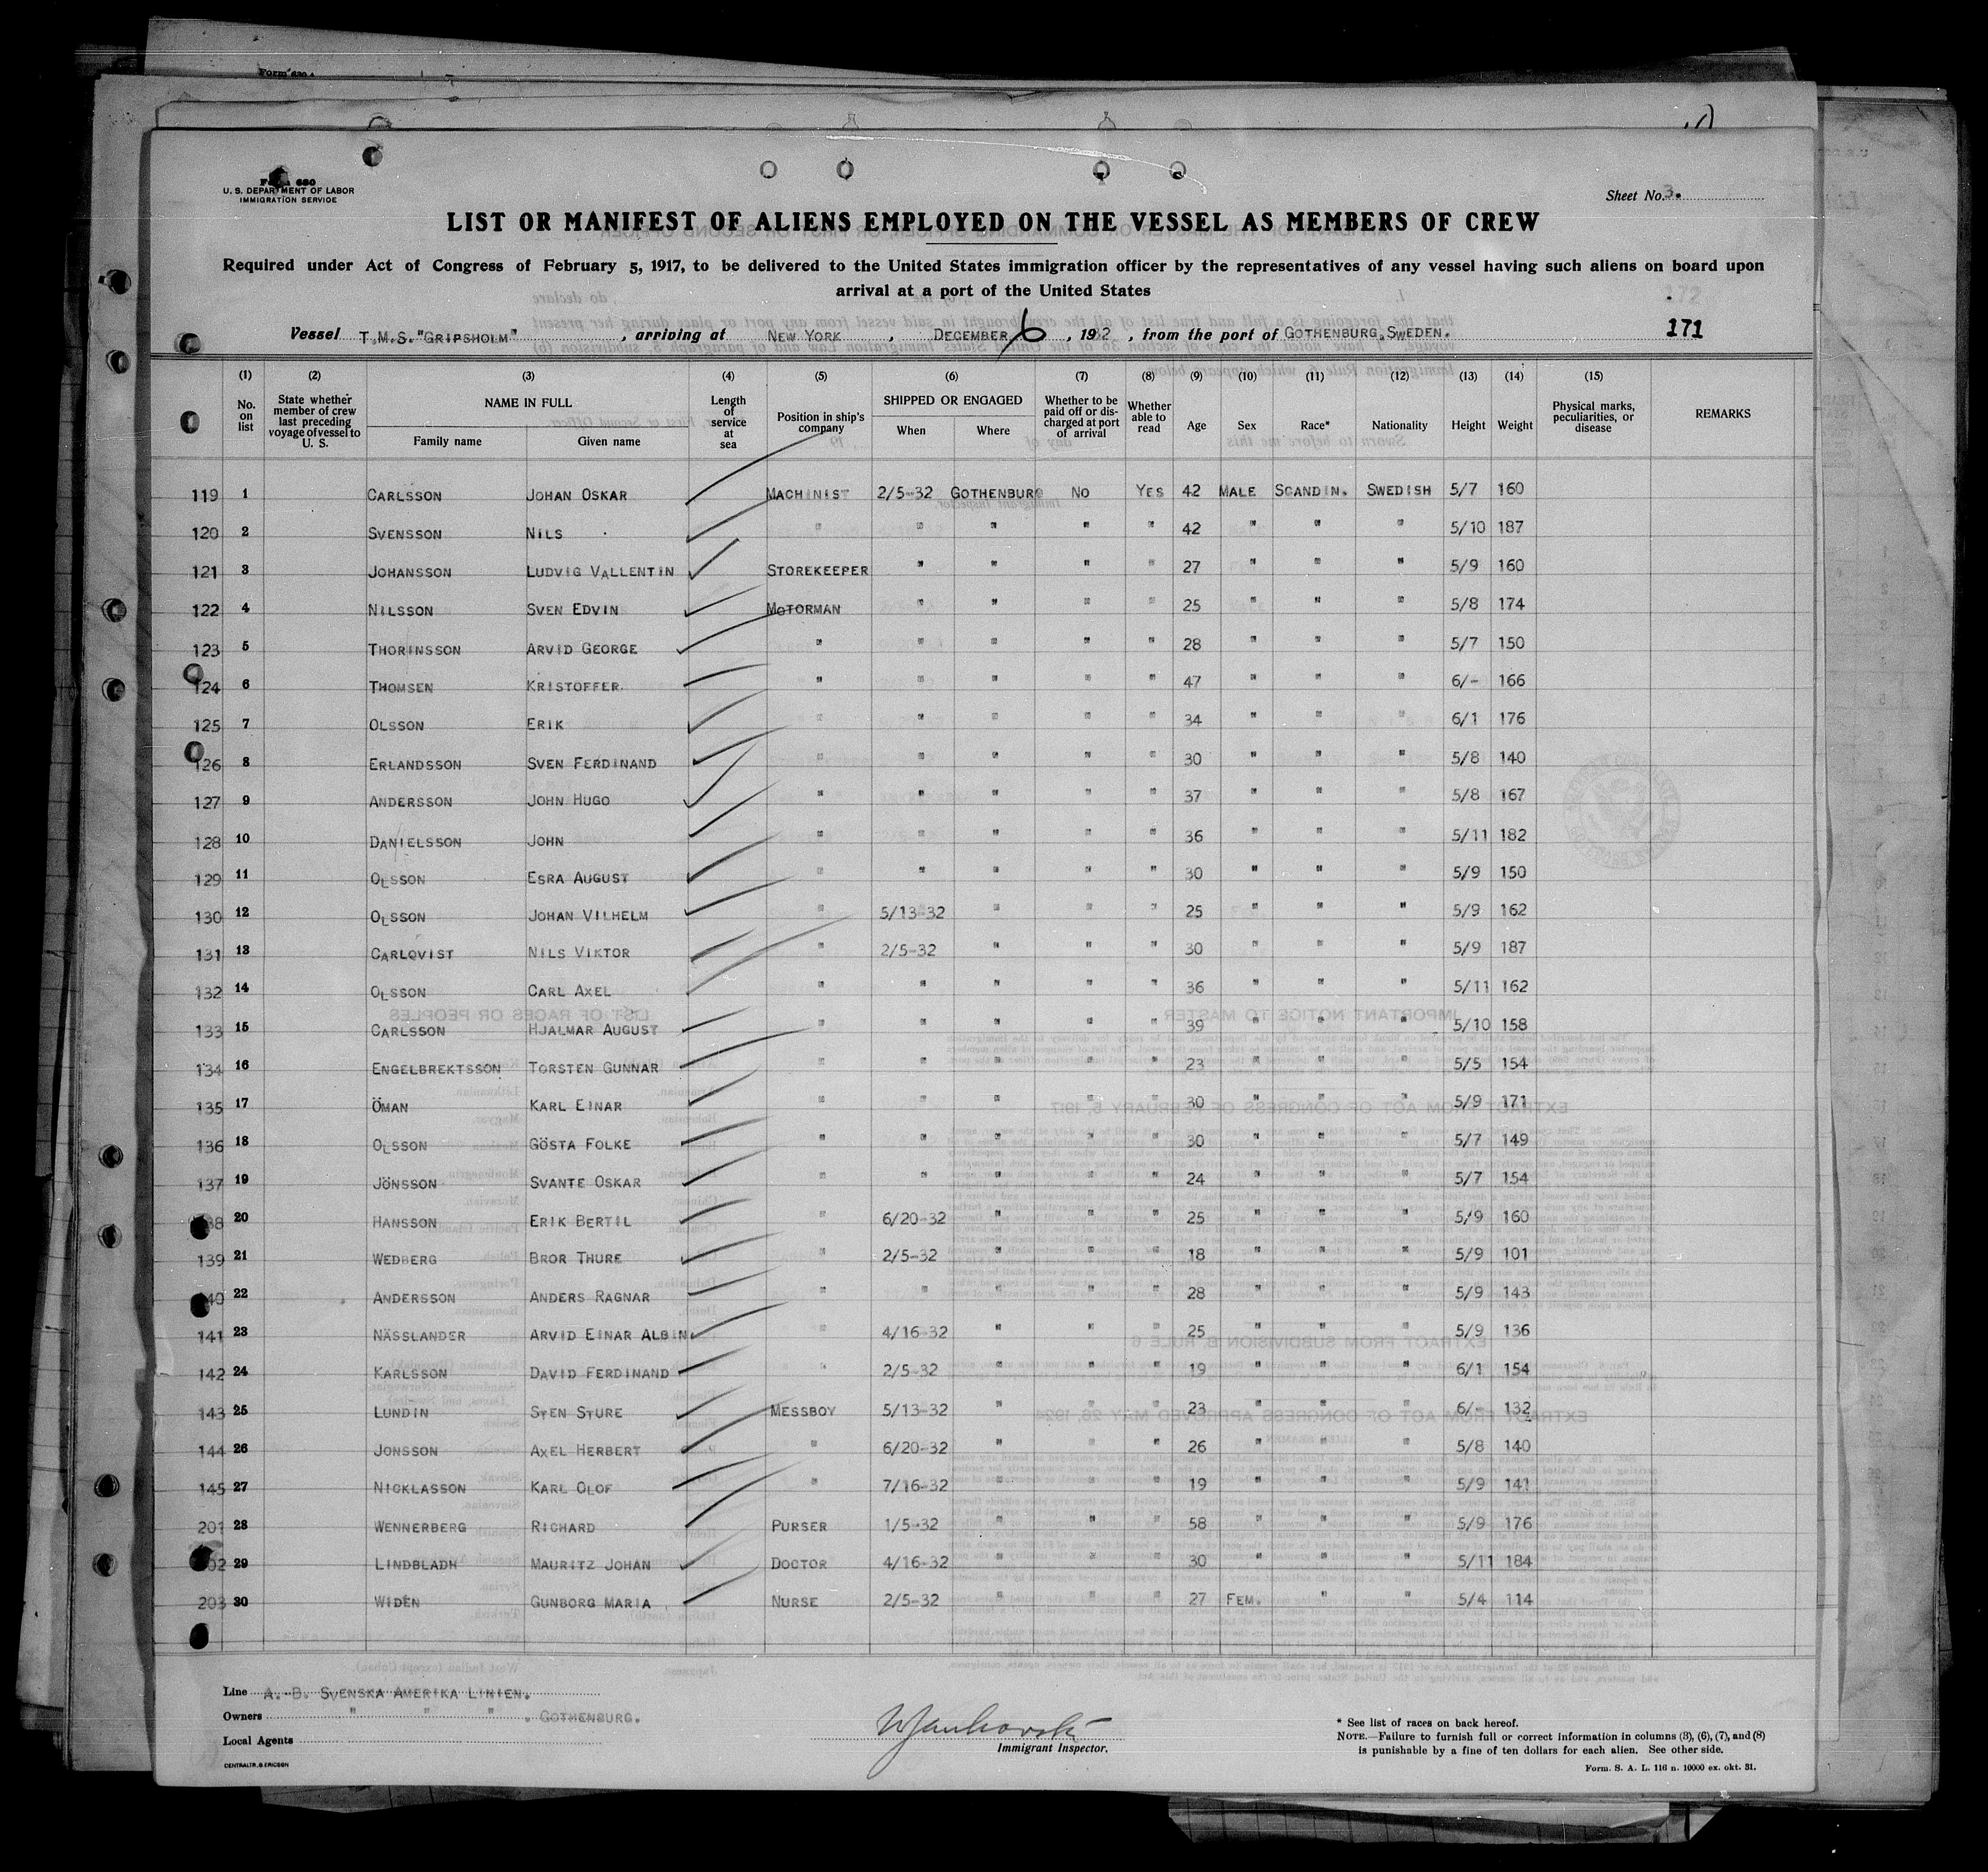 Form 680
U. S. DEPARTMENT OF LABOR
IMMIGRATION SERVICE
Sheet No. 3.
LIST OR MANIFEST OF ALIENS EMPLOYED ON THE VESSEL AS MEMBERS OF CREW
Required under Act of Congress of February 5, 1917, to be delivered to the United States immigration officer by the representatives of any vessel having such aliens on board upon
arrival at a port of the United States
Vessel T.M.S."GRIPSHOLM" , arriving at NEW YORK , DECEMBER 6 , 1932 , from the port of GOTHENBURG,SWEDEN. 171
(1) (2) (3) (4) (5) (6) (7) (8) (9) (10) (11) (12) (13) (14) (15)
No. on list State whether member of crew last preceding voyage of vessel to U. S. NAME IN FULL Family name Given name Length of service at sea Position in ship's company SHIPPED OR ENGAGED When Where Whether to be paid off or discharged at port of arrival Whether able to read Age Sex Race* Nationality Height Weight Physical marks, peculiarities, or disease REMARKS
119 1 CARLSSON JOHAN OSKAR MACHINIST 2/5-32 GOTHENBURG NO YES 42 MALE SCANDIN. SWEDISH 5/7 160
120 2 SVENSSON NILS " " " " " 42 " " " 5/10 187
121 3 JOHANSSON LUDVIG VALLENTIN STOREKEEPER " " " " 27 " " " 5/9 160
122 4 NILSSON SVEN EDVIN MOTORMAN " " " " 25 " " " 5/8 174
123 5 THORINSSON ARVID GEORGE " " " " " 28 " " " 5/7 150
124 6 THOMSEN KRISTOFFER " " " " " 47 " " " 6/- 166
125 7 OLSSON ERIK " " " " " 34 " " " 6/1 176
126 8 ERLANDSSON SVEN FERDINAND " " " " " 30 " " " 5/8 140
127 9 ANDERSSON JOHN HUGO " " " " " 37 " " " 5/8 167
128 10 DANIELSSON JOHN " " " " " 36 " " " 5/11 182
129 11 OLSSON ESRA AUGUST " " " " " 30 " " " 5/9 150
130 12 OLSSON JOHAN VILHELM " 5/13-32 " " " 25 " " " 5/9 162
131 13 CARLQVIST NILS VIKTOR " 2/5-32 " " " 30 " " " 5/9 187
132 14 OLSSON CARL AXEL " " " " " 36 " " " 5/11 162
133 15 CARLSSON HJALMAR AUGUST " " " " " 39 " " " 5/10 158
134 16 ENGELBREKTSSON TORSTEN GUNNAR " " " " " 23 " " " 5/5 154
135 17 ÖMAN KARL EINAR " " " " " 30 " " " 5/9 171
136 18 OLSSON GÖSTA FOLKE " " " " " 30 " " " 5/7 149
137 19 JÖNSSON SVANTE OSKAR " " " " " 24 " " " 5/7 154
138 20 HANSSON ERIK BERTIL " 6/20-32 " " " 25 " " " 5/9 160
139 21 WEDBERG BROR THURE " 2/5-32 " " " 18 " " " 5/9 101
140 22 ANDERSSON ANDERS RAGNAR " " " " " 28 " " " 5/9 143
141 23 NÄSSLANDER ARVID EINAR ALBIN " 4/16-32 " " " 25 " " " 5/9 136
142 24 KARLSSON DAVID FERDINAND " 2/5-32 " " " 19 " " " 6/1 154
143 25 LUNDIN STEN STURE MESSBOY 5/13-32 " " " 23 " " " 6/- 132
144 26 JONSSON AXEL HERBERT " 6/20-32 " " " 26 " " " 5/8 140
145 27 NICKLASSON KARL OLOF " 7/16-32 " " " 19 " " " 5/9 141
201 28 WENNERBERG RICHARD PURSER 1/5-32 " " " 58 " " " 5/9 176
202 29 LINDBLADH MAURITZ JOHAN DOCTOR 4/16-32 " " " 30 " " " 5/11 184
203 30 WIDÉN GUNBORG MARIA NURSE 2/5-32 " " " 27 FEM. " " 5/4 114
Line A.-B. SVENSKA AMERIKA LINIEN.
Owners " " " . GOTHENBURG.
Local Agents
CENTRALTR. B. ERICSON
Immigrant Inspector.
* See list of races on back hereof.
NOTE.—Failure to furnish full or correct information in columns (3), (6), (7), and (8)
is punishable by a fine of ten dollars for each alien. See other side.
Form. S. A. L. 116 n. 10000 ex. okt. 31.